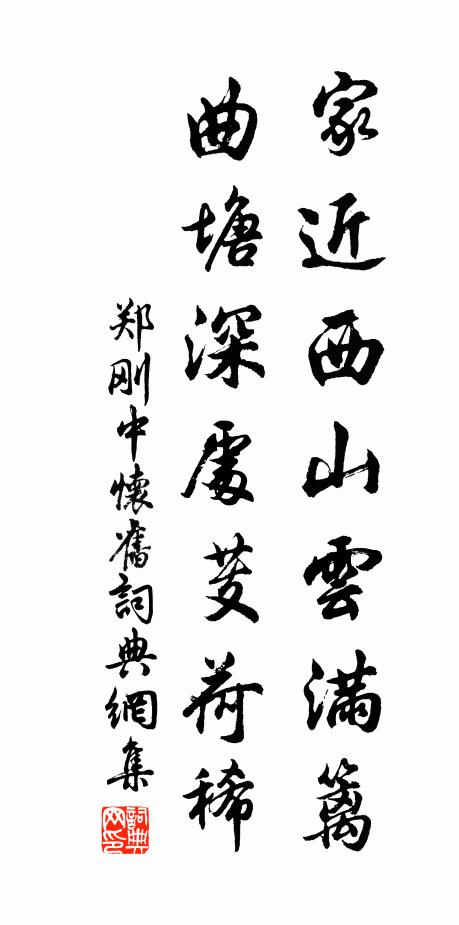 家近西山雲滿籬
曲塘深處芰荷稀
郑刚中懷舊詞典網集
詞典网印